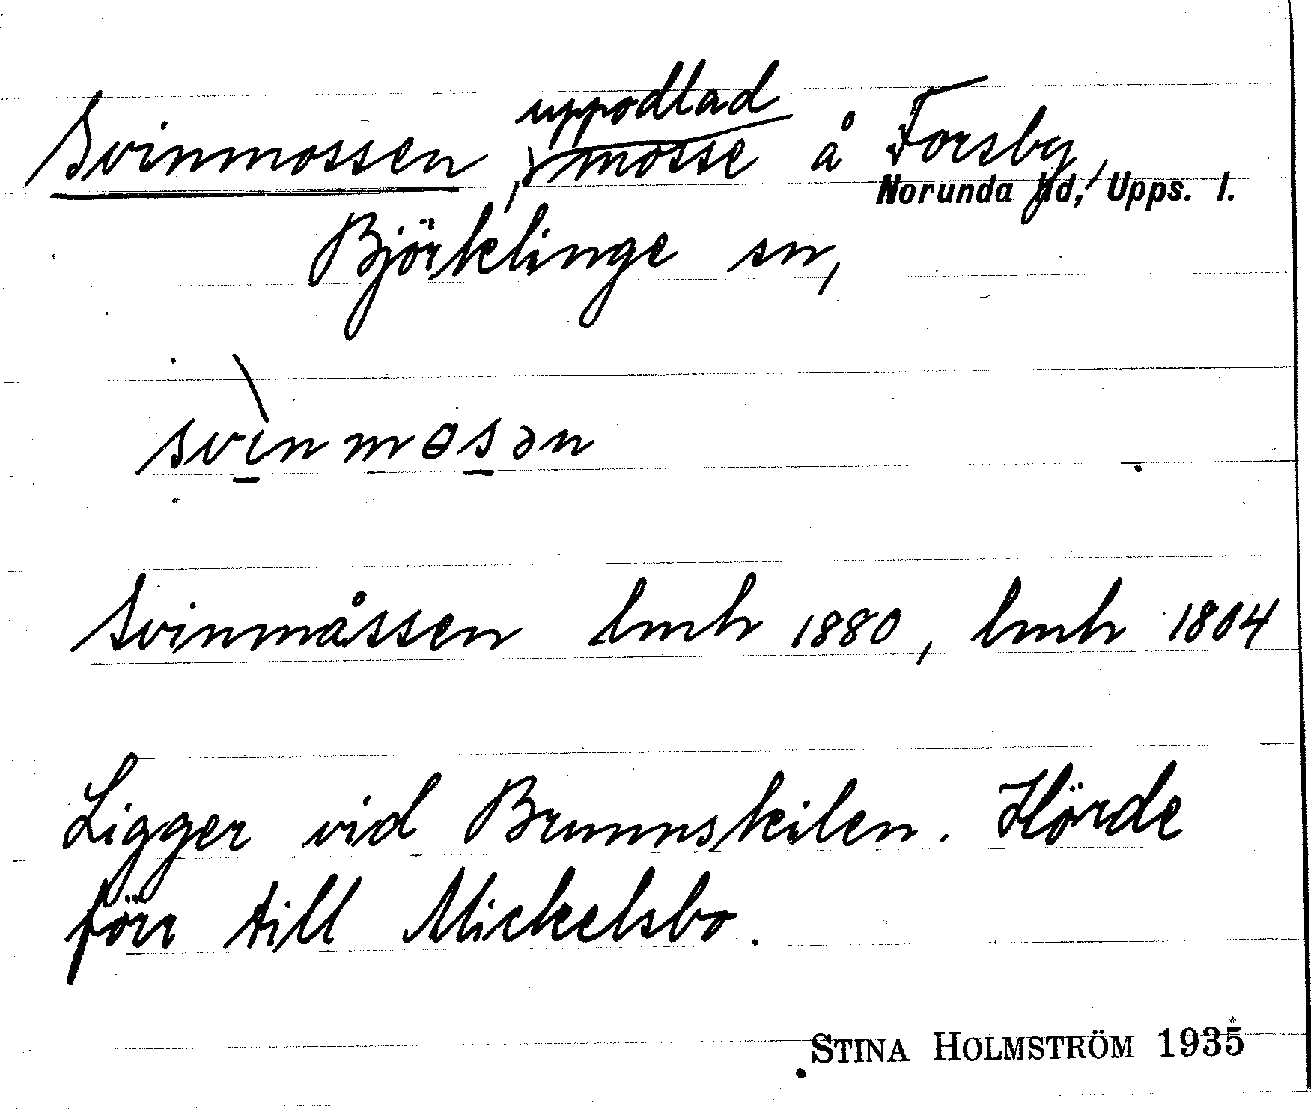 Svinmossen, uppodlad mosse å Forsby,
Björklinge sn, Norunda hd, Upps. l.
svìnmɵsən
Svinmåssen lmh 1880, lmh 1804
Ligger vid Brunnskilen. Hörde
förr till Mickelsbo.
STINA HOLMSTRÖM 1935